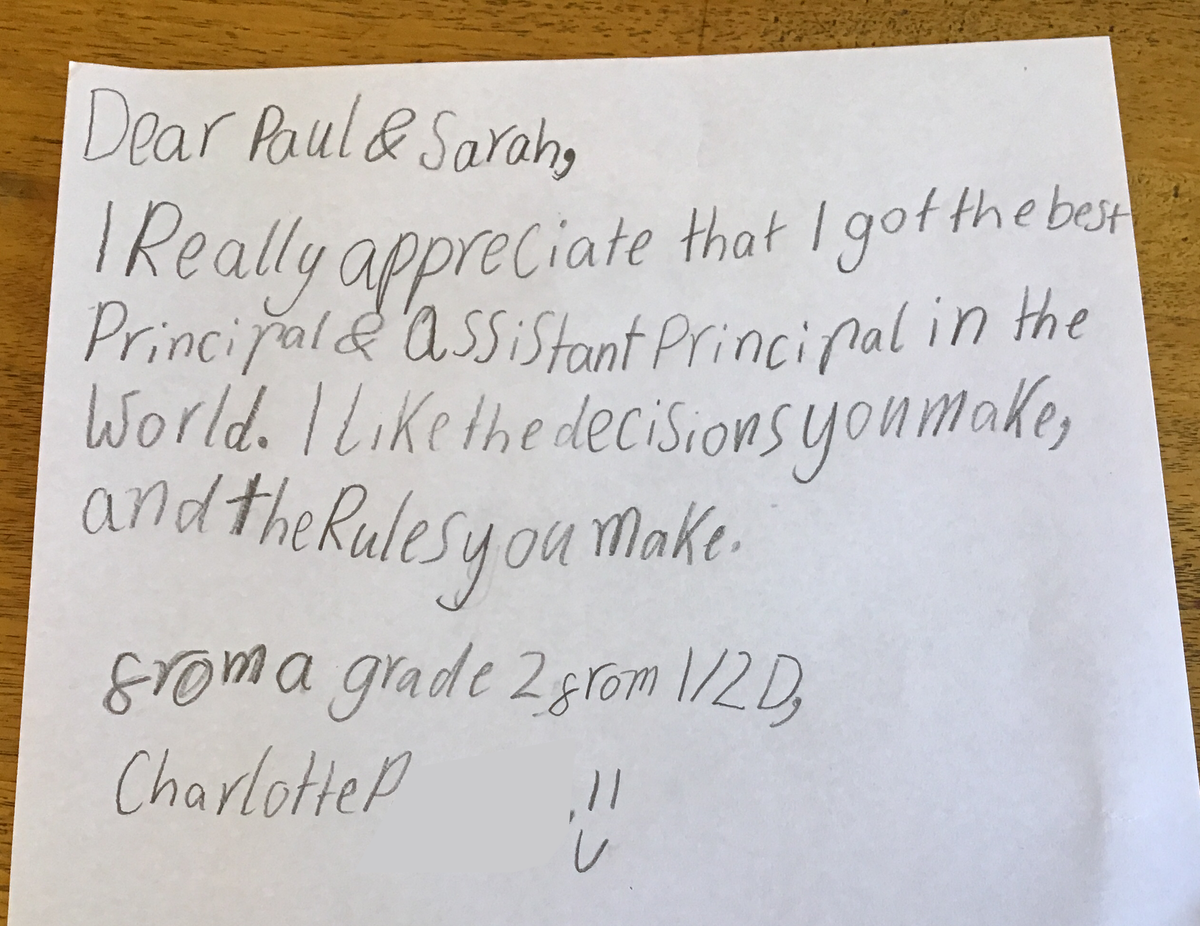 Dear Paul & Sarah,
I Really appreciate that I got the best
Principal & assistant Principal in the
World. I Like the decisions you make,
and the Rules you make.
from a grade 2 from 1/2D,
Charlotte P